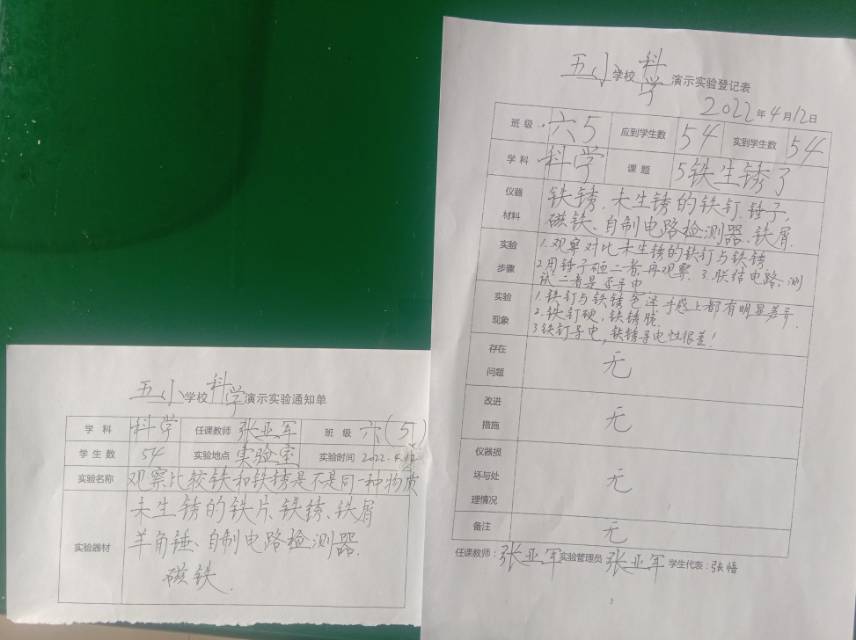 五小学校科学演示实验通知单
学科 科学 任课教师 张亚军 班级 六(5)
学生数 54 实验地点 实验室 实验时间 2022.4.12
实验名称 观察比较铁和铁锈是不是同一种物质
实验器材 未生锈的铁片、铁锈、铁屑
羊角锤、自制电路检测器.
磁铁.
五小学校科学演示实验登记表
2022年4月12日
班级 六5 应到学生数 54 实到学生数 54
学科 科学 课题 5铁生锈了
仪器材料 铁锈、未生锈的铁钉、锤子,
磁铁、自制电路检测器、铁屑.
实验步骤 1.观察对比未生锈的铁钉与铁锈
2用锤子砸二者再观察. 3.联结电路、测
试二者是否导电
实验现象 1.铁钉与铁锈色泽、手感上都有明显差异.
2.铁钉硬,铁锈脆.
3铁钉导电,铁锈导电性很差!
存在问题 无
改进措施 无
仪器损坏与处理情况 无
备注 无
任课教师:张亚军 实验管理员 张亚军 学生代表:张悟